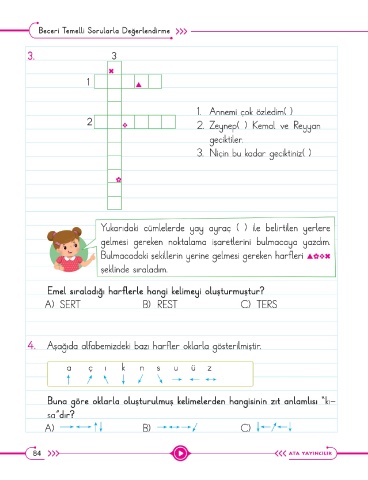 Beceri Temelli Sorularla Değerlendirme
3.
3
1
2
1. Annemi çok özledim( )
2. Zeynep( ) Kemal ve Reyyan
geciktiler.
3. Niçin bu kadar geciktiniz( )
Yukarıdaki cümlelerde yay ayraç ( ) ile belirtilen yerlere
gelmesi gereken noktalama işaretlerini bulmacaya yazdım.
Bulmacadaki şekillerin yerine gelmesi gereken harfleri ▲✿❖✖
şeklinde sıraladım.
Emel sıraladığı harflerle hangi kelimeyi oluşturmuştur?
A) SERT B) REST C) TERS
4. Aşağıda alfabemizdeki bazı harfler oklarla gösterilmiştir.
a ç ı k n s u ü z
Buna göre oklarla oluşturulmuş kelimelerden hangisinin zıt anlamlısı "kı-
sa"dır?
A) B) C)
84
ATA YAYINCILIK